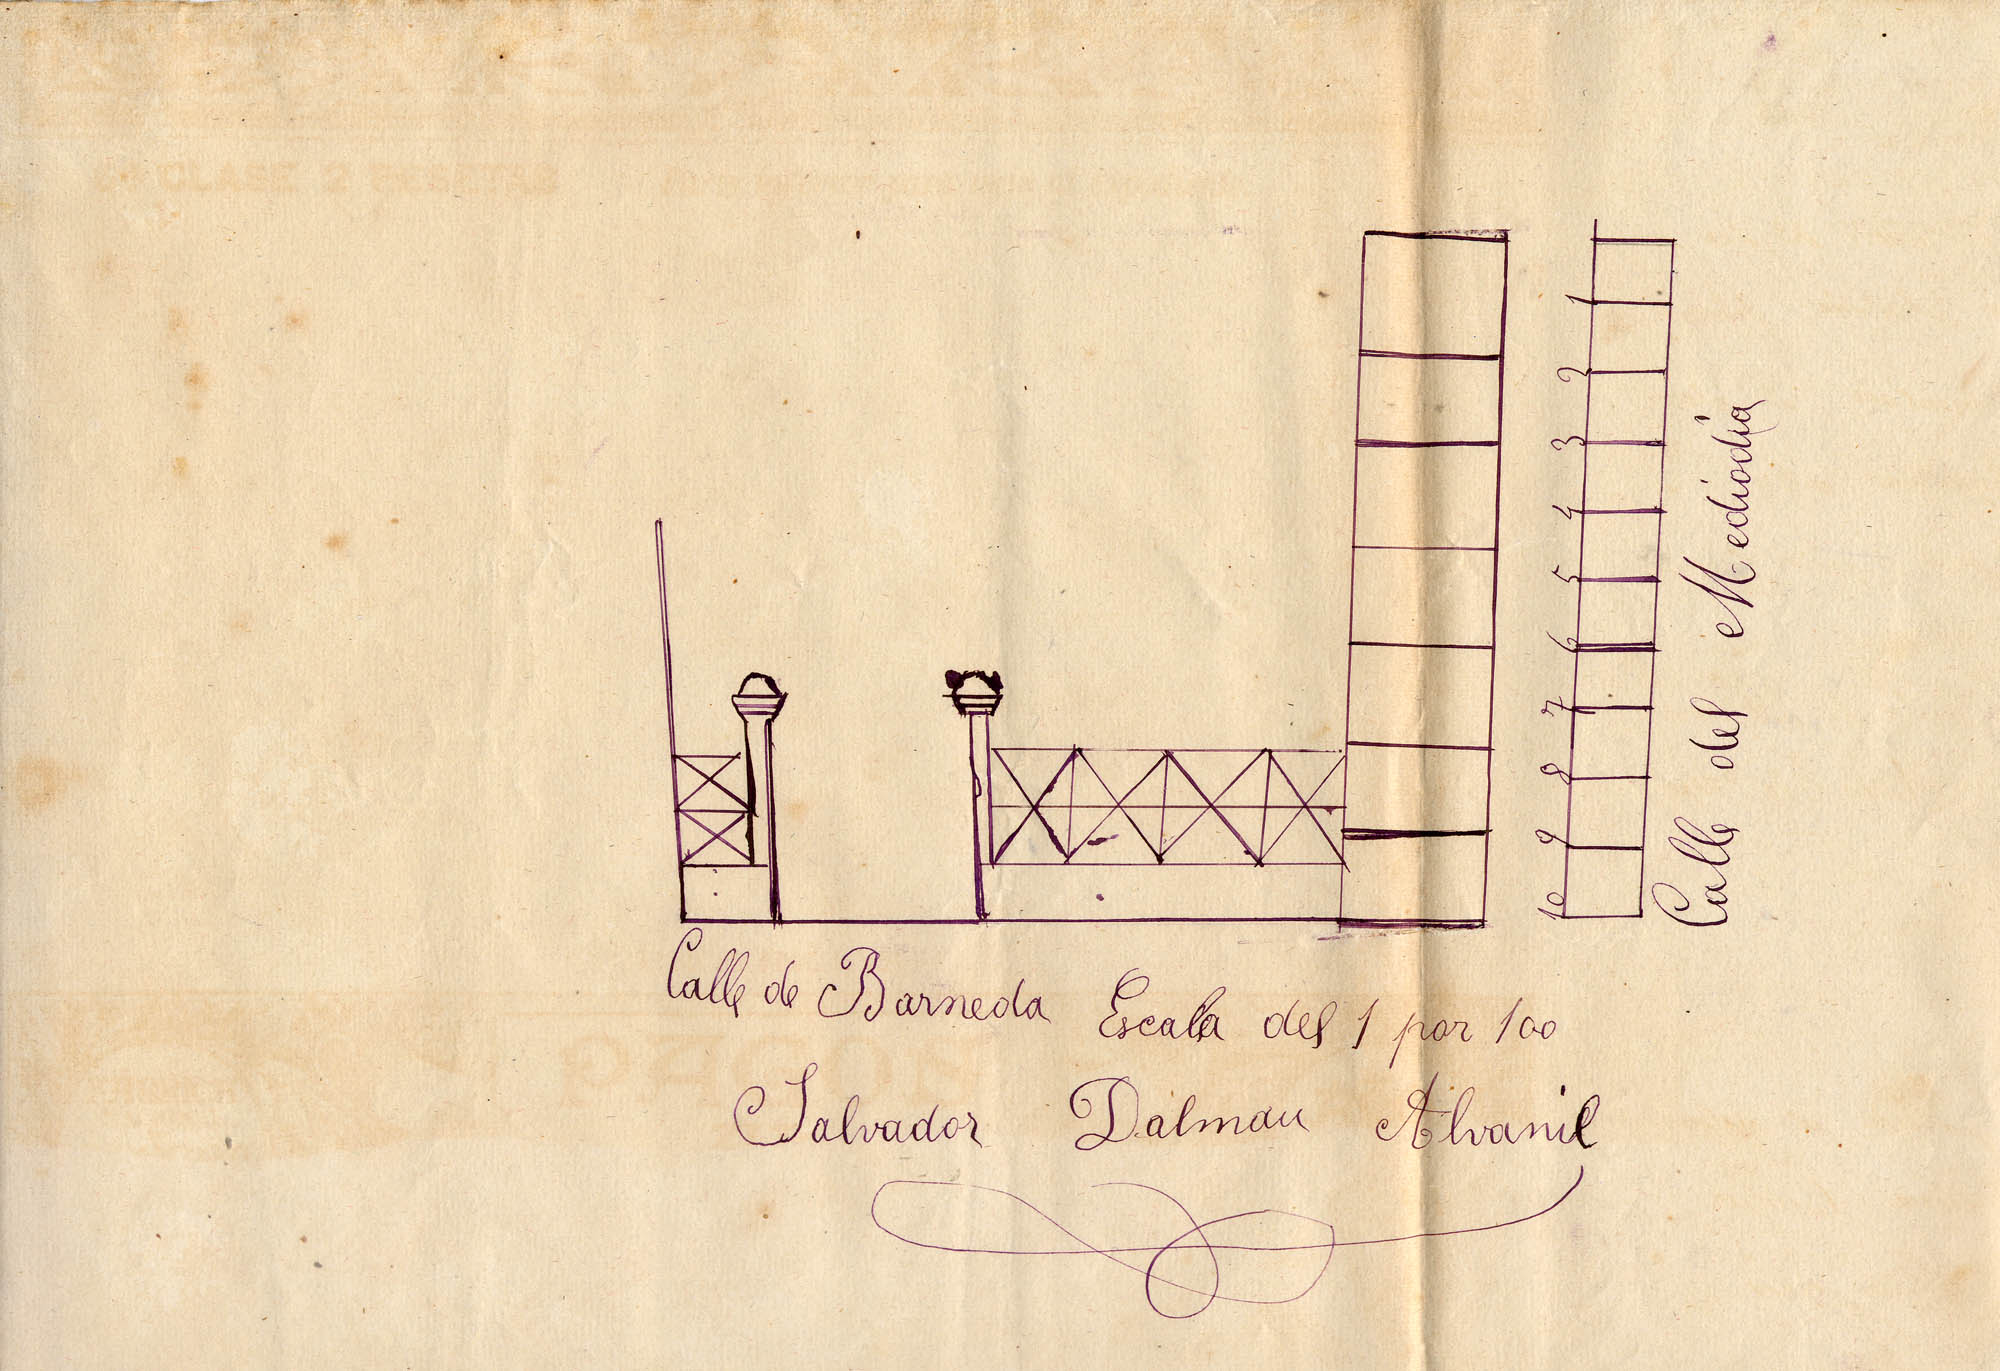 CLASE 2 PESETAS
1
2
3
4
5
6
7
8
9
10
Calle del Mediodia
Calle de Barneda
Escala del 1 por 100
Salvador Dalmau Alvanil